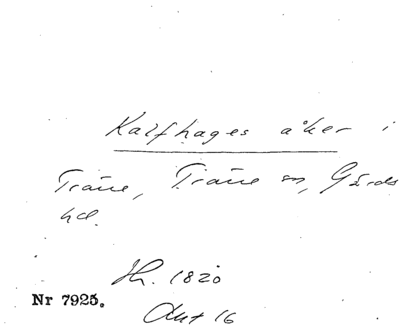 Kalfhages åker i
Träne, Träne sn, Gärds
hd.
Hr. 1820
Nr 7925.
Akt 16